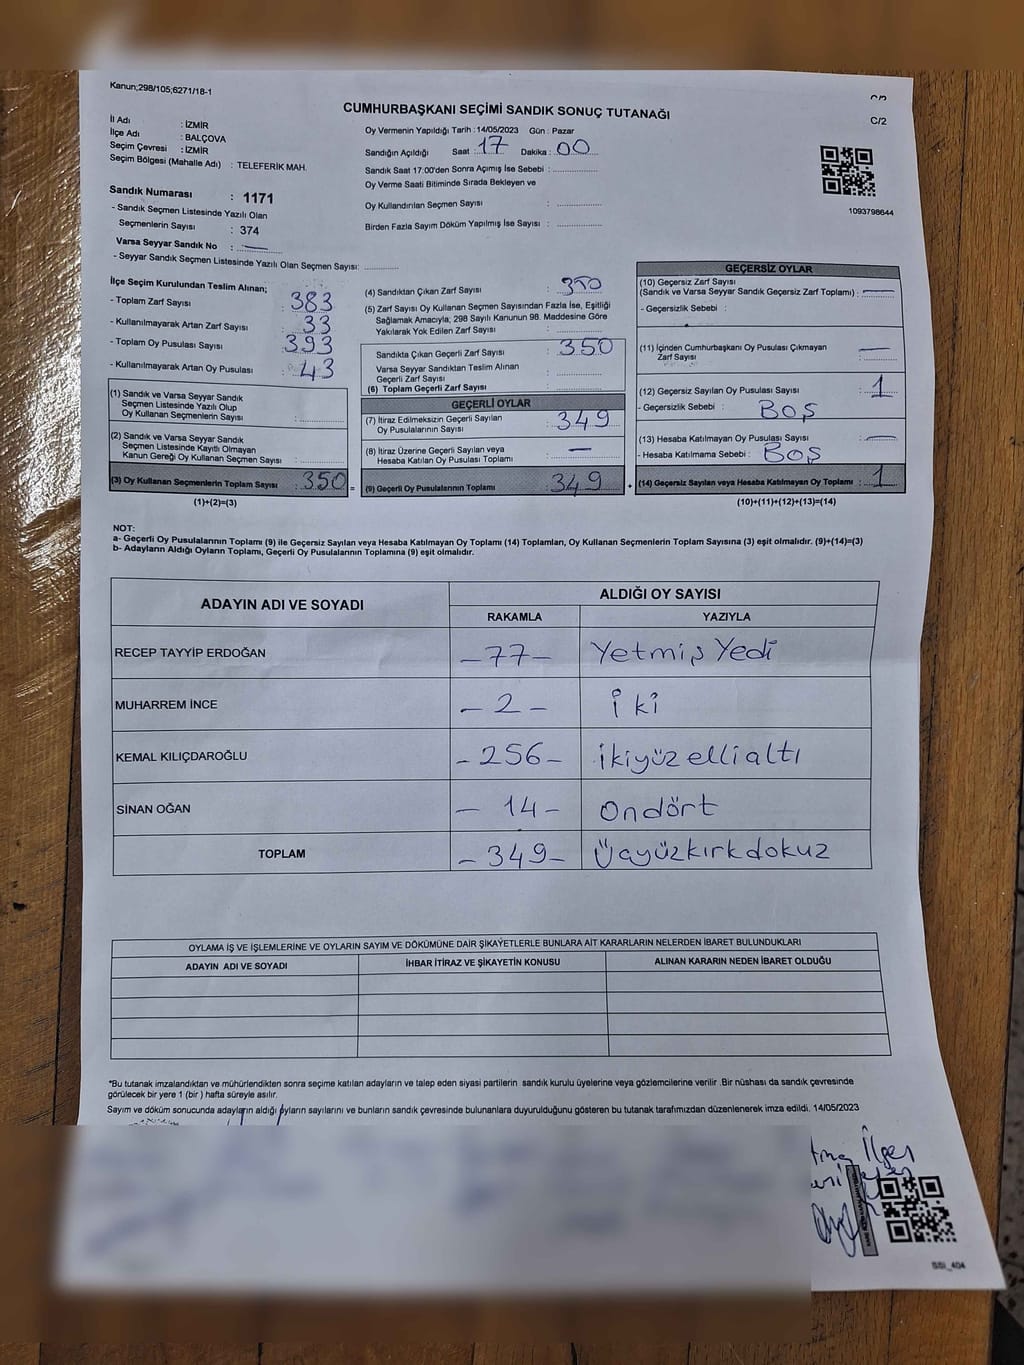 Kanun;298/105;6271/18-1
C/2
CUMHURBAŞKANI SEÇİMİ SANDIK SONUÇ TUTANAĞI
İl Adı : İZMİR
İlçe Adı : BALÇOVA
Seçim Çevresi : İZMİR
Seçim Bölgesi (Mahalle Adı) : TELEFERİK MAH.
Sandık Numarası : 1171
- Sandık Seçmen Listesinde Yazılı Olan
Seçmenlerin Sayısı : 374
Varsa Seyyar Sandık No : —
- Seyyar Sandık Seçmen Listesinde Yazılı Olan Seçmen Sayısı: ............
Oy Vermenin Yapıldığı Tarih : 14/05/2023 Gün : Pazar
Sandığın Açıldığı Saat : 17 Dakika : 00
Sandık Saat 17:00'den Sonra Açımış İse Sebebi : ...............
Oy Verme Saati Bitiminde Sırada Bekleyen ve
Oy Kullandırılan Seçmen Sayısı : ...............
Birden Fazla Sayım Döküm Yapılmış İse Sayısı : ...............
1093798644
İlçe Seçim Kurulundan Teslim Alınan;
- Toplam Zarf Sayısı : 383
- Kullanılmayarak Artan Zarf Sayısı : 33
- Toplam Oy Pusulası Sayısı : 393
- Kullanılmayarak Artan Oy Pusulası : 43
(1) Sandık ve Varsa Seyyar Sandık
Seçmen Listesinde Yazılı Olup
Oy Kullanan Seçmenlerin Sayısı : ............
(2) Sandık ve Varsa Seyyar Sandık
Seçmen Listesinde Kayıtlı Olmayan
Kanun Gereği Oy Kullanan Seçmen Sayısı : ............
(3) Oy Kullanan Seçmenlerin Toplam Sayısı : 350
(1)+(2)=(3)
(4) Sandıktan Çıkan Zarf Sayısı : 350
(5) Zarf Sayısı Oy Kullanan Seçmen Sayısından Fazla İse, Eşitliği
Sağlamak Amacıyla; 298 Sayılı Kanunun 98. Maddesine Göre
Yakılarak Yok Edilen Zarf Sayısı : ............
Sandıkta Çıkan Geçerli Zarf Sayısı : 350
Varsa Seyyar Sandıktan Teslim Alınan
Geçerli Zarf Sayısı : ............
(6) Toplam Geçerli Zarf Sayısı : ............
GEÇERLİ OYLAR
(7) İtiraz Edilmeksizin Geçerli Sayılan
Oy Pusulalarının Sayısı : 349
(8) İtiraz Üzerine Geçerli Sayılan veya
Hesaba Katılan Oy Pusulası Toplamı : —
= (9) Geçerli Oy Pusulalarının Toplamı : 349
GEÇERSİZ OYLAR
(10) Geçersiz Zarf Sayısı
(Sandık ve Varsa Seyyar Sandık Geçersiz Zarf Toplamı) : —
- Geçersizlik Sebebi :
(11) İçinden Cumhurbaşkanı Oy Pusulası Çıkmayan
Zarf Sayısı : —
(12) Geçersiz Sayılan Oy Pusulası Sayısı : 1
- Geçersizlik Sebebi : BOŞ
(13) Hesaba Katılmayan Oy Pusulası Sayısı : —
- Hesaba Katılmama Sebebi : BOŞ
+ (14) Geçersiz Sayılan veya Hesaba Katılmayan Oy Toplamı : 1
(10)+(11)+(12)+(13)=(14)
NOT:
a- Geçerli Oy Pusulalarının Toplamı (9) ile Geçersiz Sayılan veya Hesaba Katılmayan Oy Toplamı (14) Toplamları, Oy Kullanan Seçmenlerin Toplam Sayısına (3) eşit olmalıdır. (9)+(14)=(3)
b- Adayların Aldığı Oyların Toplamı, Geçerli Oy Pusulalarının Toplamına (9) eşit olmalıdır.
ADAYIN ADI VE SOYADI ALDIĞI OY SAYISI
RAKAMLA YAZIYLA
RECEP TAYYİP ERDOĞAN -77- Yetmiş Yedi
MUHARREM İNCE - 2 - İki
KEMAL KILIÇDAROĞLU -256- İkiyüz ellialtı
SİNAN OĞAN - 14 - Ondört
TOPLAM -349- Üçyüzkırkdokuz
OYLAMA İŞ VE İŞLEMLERİNE VE OYLARIN SAYIM VE DÖKÜMÜNE DAİR ŞİKAYETLERLE BUNLARA AİT KARARLARIN NELERDEN İBARET BULUNDUKLARI
ADAYIN ADI VE SOYADI İHBAR İTİRAZ VE ŞİKAYETİN KONUSU ALINAN KARARIN NEDEN İBARET OLDUĞU
*Bu tutanak imzalandıktan ve mühürlendikten sonra seçime katılan adayların ve talep eden siyasi partilerin sandık kurulu üyelerine veya gözlemcilerine verilir .Bir nüshası da sandık çevresinde
görülecek bir yere 1 (bir ) hafta süreyle asılır.
Sayım ve döküm sonucunda adayların aldığı oyların sayılarını ve bunların sandık çevresinde bulunanlara duyurulduğunu gösteren bu tutanak tarafımızdan düzenlenerek imza edildi. 14/05/2023
SSI_404